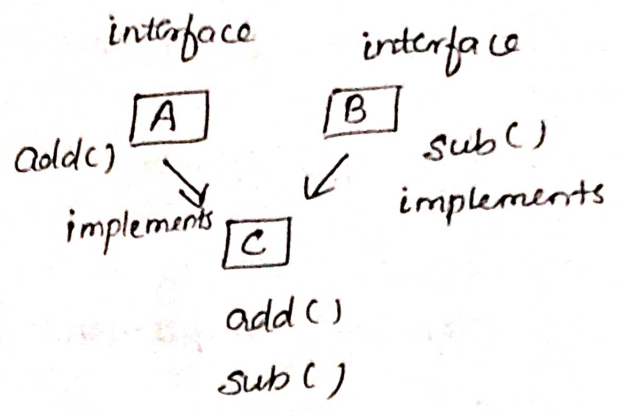 interface interface
A B
add() sub()
implements implements
C
add()
sub()